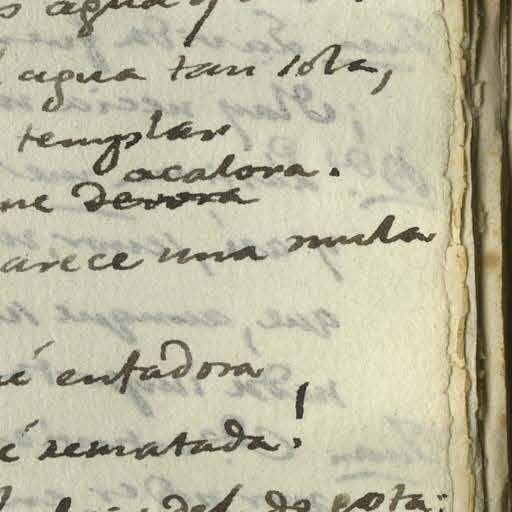 agua
agua tan sola,
templar
acalora.
me devora
arece una mula
é enfadora
é rematada!